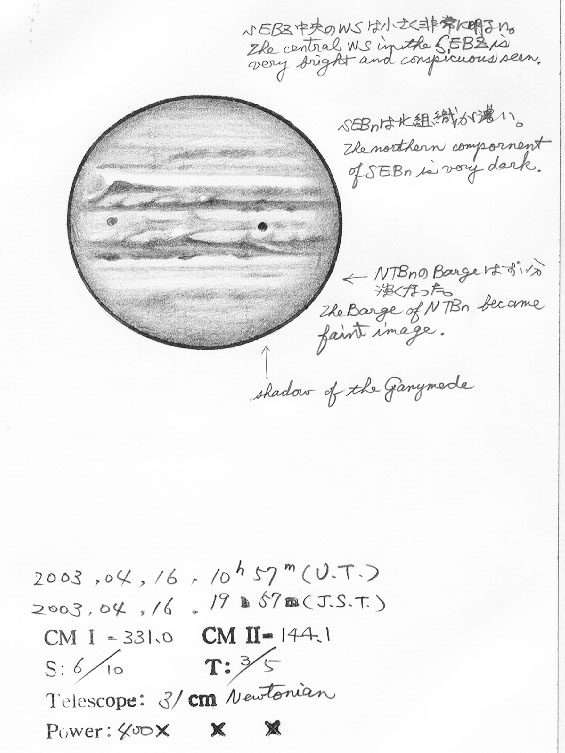 SEBZ中央のWSは小さく非常に明るい。
The central WS in the SEBZ is
very bright and conspicuous seen.
SEBnは北組織が濃い。
The northern compornent
of SEBn is very dark.
← NTBnのBargeはずい分
淡くなった。
The Barge of NTBn became
faint image.
shadow of the Ganymede
2003,04,16, 10h 57m (U.T.)
2003,04,16, 19h 57m (J.S.T.)
CM I = 331.0 CM II= 144.1
S: 6/10 T: 3/5
Telescope: 31 cm Newtonian
Power: 400× × ×